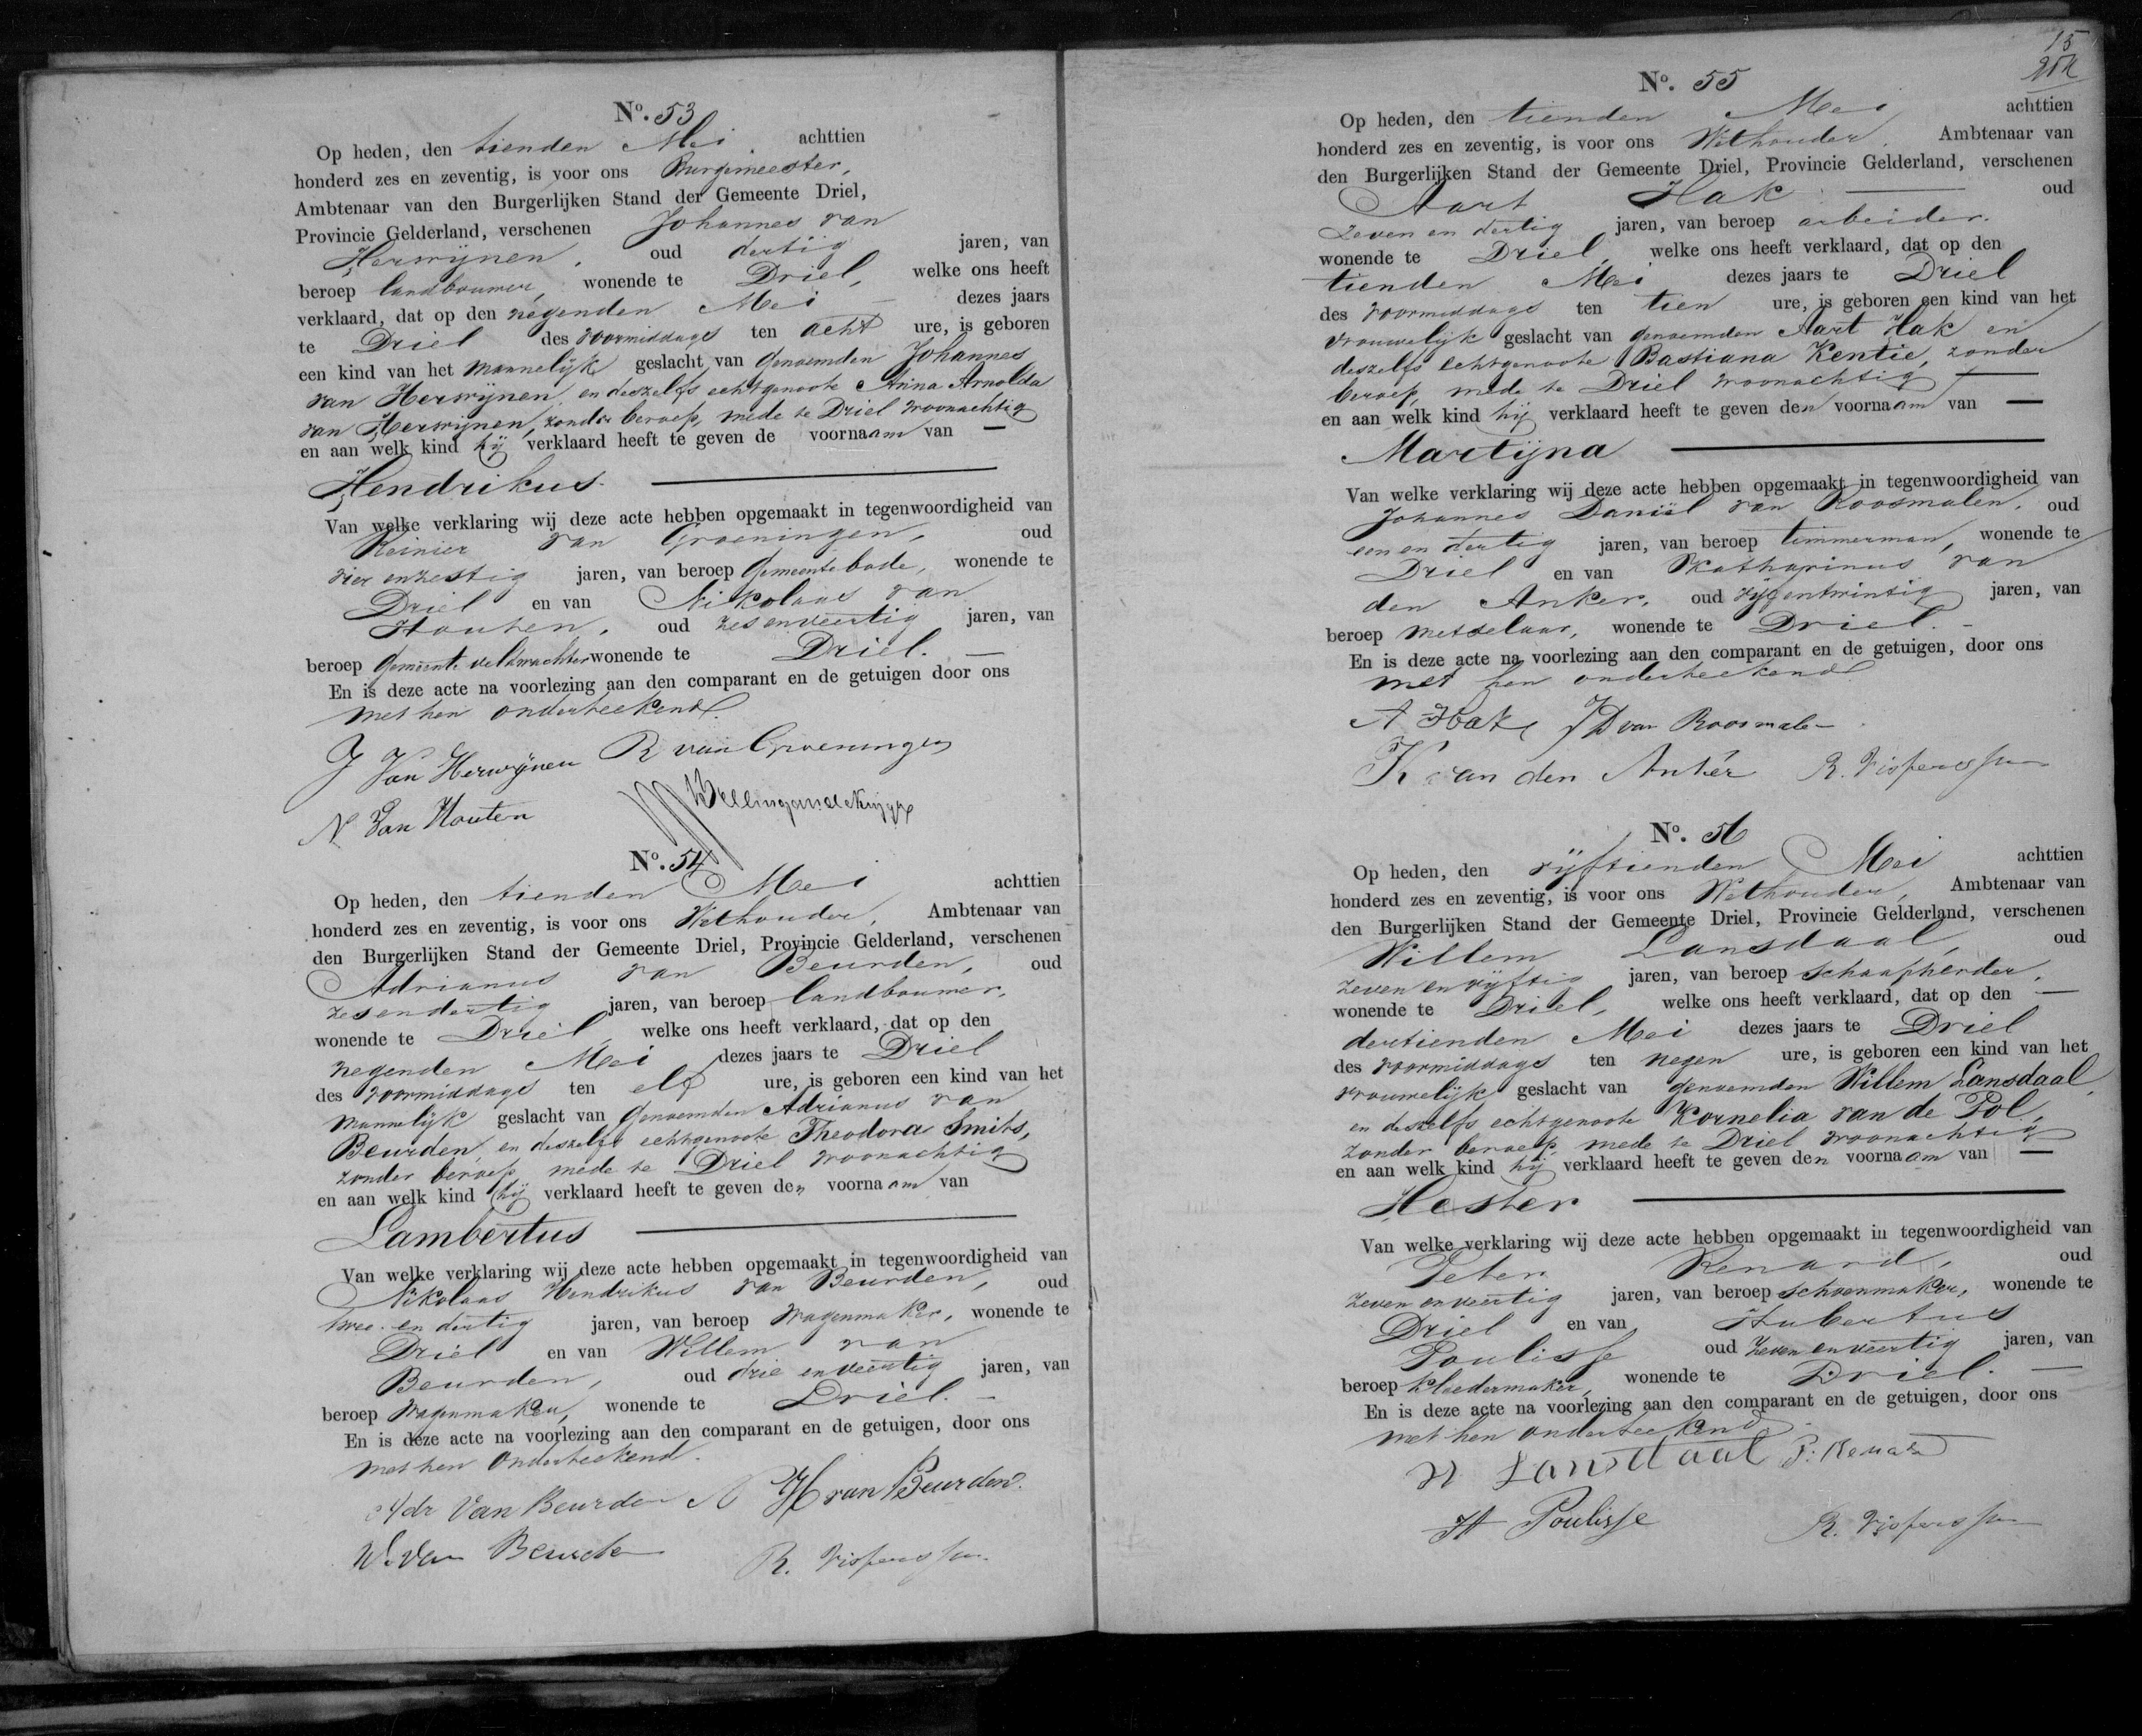 N°. 53
Op heden, den tienden Mei achttien
honderd zes en zeventig, is voor ons Burgemeester,
Ambtenaar van den Burgerlijken Stand der Gemeente Driel,
Provincie Gelderland, verschenen Johannes van
Herwijnen, oud dertig jaren, van
beroep landbouwer, wonende te Driel, welke ons heeft
verklaard, dat op den negenden Mei — dezes jaars
te Driel des voormiddags ten acht ure, is geboren
een kind van het mannelijk geslacht van genoemden Johannes
van Herwijnen, en deszelfs echtgenoote Anna Arnolda
van Herwijnen, zonder beroep, mede te Driel woonachtig
en aan welk kind hij verklaard heeft te geven de voornaam van —
Hendrikus. —
Van welke verklaring wij deze acte hebben opgemaakt in tegenwoordigheid van
Reinier van Groeningen, oud
vier en zestig jaren, van beroep Gemeentebode, wonende te
Driel en van Nikolaas van
Houten, oud zes en veertig jaren, van
beroep Gemeente veldwachter wonende te Driel. —
En is deze acte na voorlezing aan den comparant en de getuigen door ons
met hen onderteekend.
J Van Herwijnen R van Groeningen
N Van Houten
N°. 54
Op heden, den tienden Mei achttien
honderd zes en zeventig, is voor ons Wethouder, Ambtenaar van
den Burgerlijken Stand der Gemeente Driel, Provincie Gelderland, verschenen
Adrianus van Beurden, oud
zes en dertig jaren, van beroep landbouwer,
wonende te Driel, welke ons heeft verklaard, dat op den
negenden Mei dezes jaars te Driel
des voormiddags ten elf ure, is geboren een kind van het
mannelijk geslacht van genoemden Adrianus van
Beurden, en deszelfs echtgenoote Theodora Smits,
zonder beroep, mede te Driel woonachtig
en aan welk kind hij verklaard heeft te geven den voornaam van
Lambertus —
Van welke verklaring wij deze acte hebben opgemaakt in tegenwoordigheid van
Nikolaas Hendrikus van Beurden, oud
twee en dertig jaren, van beroep wagenmaker, wonende te
Driel en van Willem van
Beurden, oud drie en veertig jaren, van
beroep wagenmaker, wonende te Driel. —
En is deze acte na voorlezing aan den comparant en de getuigen, door ons
met hen onderteekend.
Adr Van Beurden N H van Beurden.
W. Van Beurden R.
15
N°. 55
Op heden, den tienden Mei achttien
honderd zes en zeventig, is voor ons Wethouder, Ambtenaar van
den Burgerlijken Stand der Gemeente Driel, Provincie Gelderland, verschenen
Aart Hak — oud
zeven en dertig jaren, van beroep arbeider.
wonende te Driel, welke ons heeft verklaard, dat op den
tienden Mei dezes jaars te Driel
des voormiddags ten tien ure, is geboren een kind van het
vrouwelijk geslacht van genoemden Aart Hak en
deszelfs echtgenoote Bastiana Kentie, zonder
beroep, mede te Driel woonachtig —
en aan welk kind hij verklaard heeft te geven den voornaam van —
Martijna —
Van welke verklaring wij deze acte hebben opgemaakt in tegenwoordigheid van
Johannes Daniël van Roosmalen, oud
een en dertig jaren, van beroep timmerman, wonende te
Driel en van Katharinus van
den Anker, oud vijfentwintig jaren, van
beroep metselaar, wonende te Driel. —
En is deze acte na voorlezing aan den comparant en de getuigen, door ons
met hen onderteekend.
A Hak J D van Roosmalen
K van den Anker R.
N°. 56
Op heden, den vijftienden Mei achttien
honderd zes en zeventig, is voor ons Wethouder, Ambtenaar van
den Burgerlijken Stand der Gemeente Driel, Provincie Gelderland, verschenen
Willem Lansdaal, oud
zeven en vijftig jaren, van beroep schaapherder,
wonende te Driel, welke ons heeft verklaard, dat op den —
dertienden Mei dezes jaars te Driel
des voormiddags ten negen ure, is geboren een kind van het
vrouwelijk geslacht van genoemden Willem Lansdaal,
en deszelfs echtgenoote Kornelia van de Pol,
zonder beroep, mede te Driel woonachtig
en aan welk kind hij verklaard heeft te geven den voornaam van —
Hester —
Van welke verklaring wij deze acte hebben opgemaakt in tegenwoordigheid van
Peter Renard, oud
zeven en veertig jaren, van beroep schoenmaker, wonende te
Driel en van Hubertus
Poulisse oud zeven en veertig jaren, van
beroep kleedermaker, wonende te Driel. —
En is deze acte na voorlezing aan den comparant en de getuigen, door ons
met hen onderteekend.
W Lansdaal P. Renard
H Poulisse R.